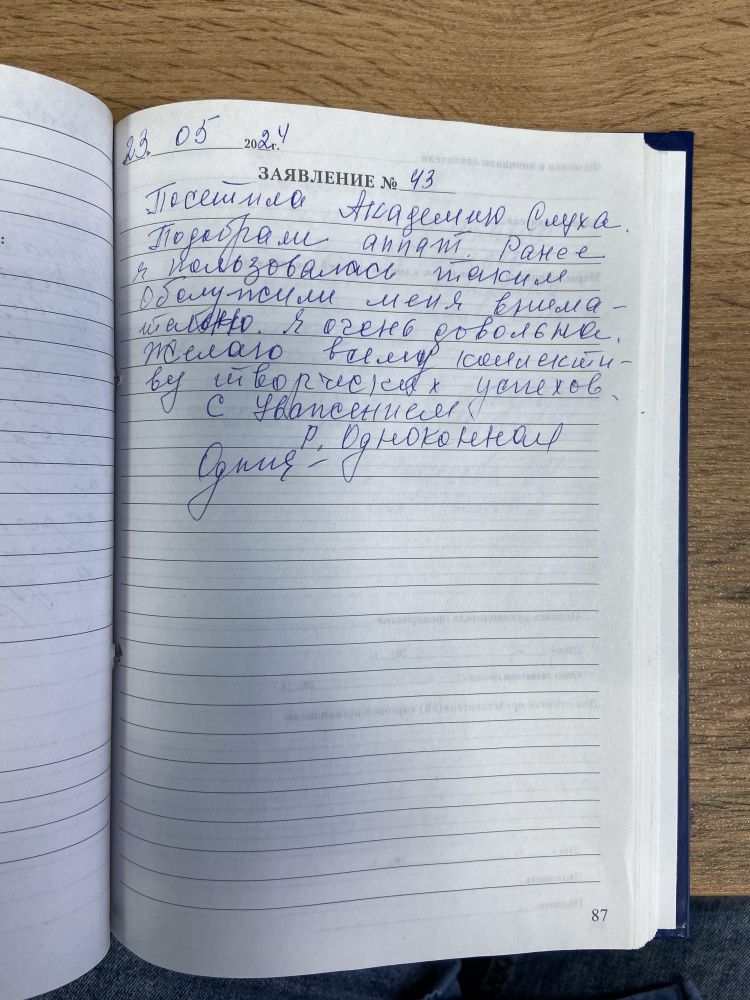 23. 05 2024г.
ЗАЯВЛЕНИЕ № 43
Посетила Академию Слуха.
Подобрали аппат. Ранее
я пользовалась таким
Обслужили меня внима-
тельно. Я очень довольна.
Желаю всему коллекти-
ву творческих успехов.
С Уважением
Р. Одноконная
87